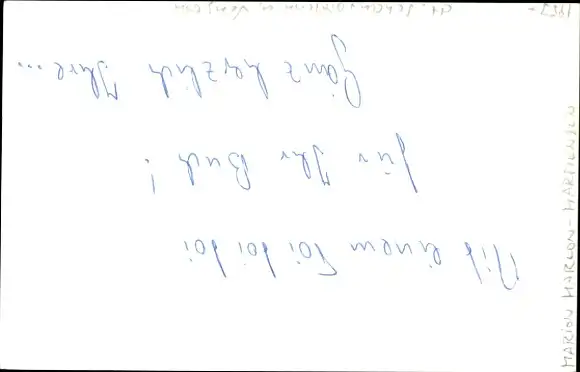 Mit einem Toi toi toi
für Ihr Buch!
Ganz herzlich Ihre...
MARION MARLON-MARTIENSEN